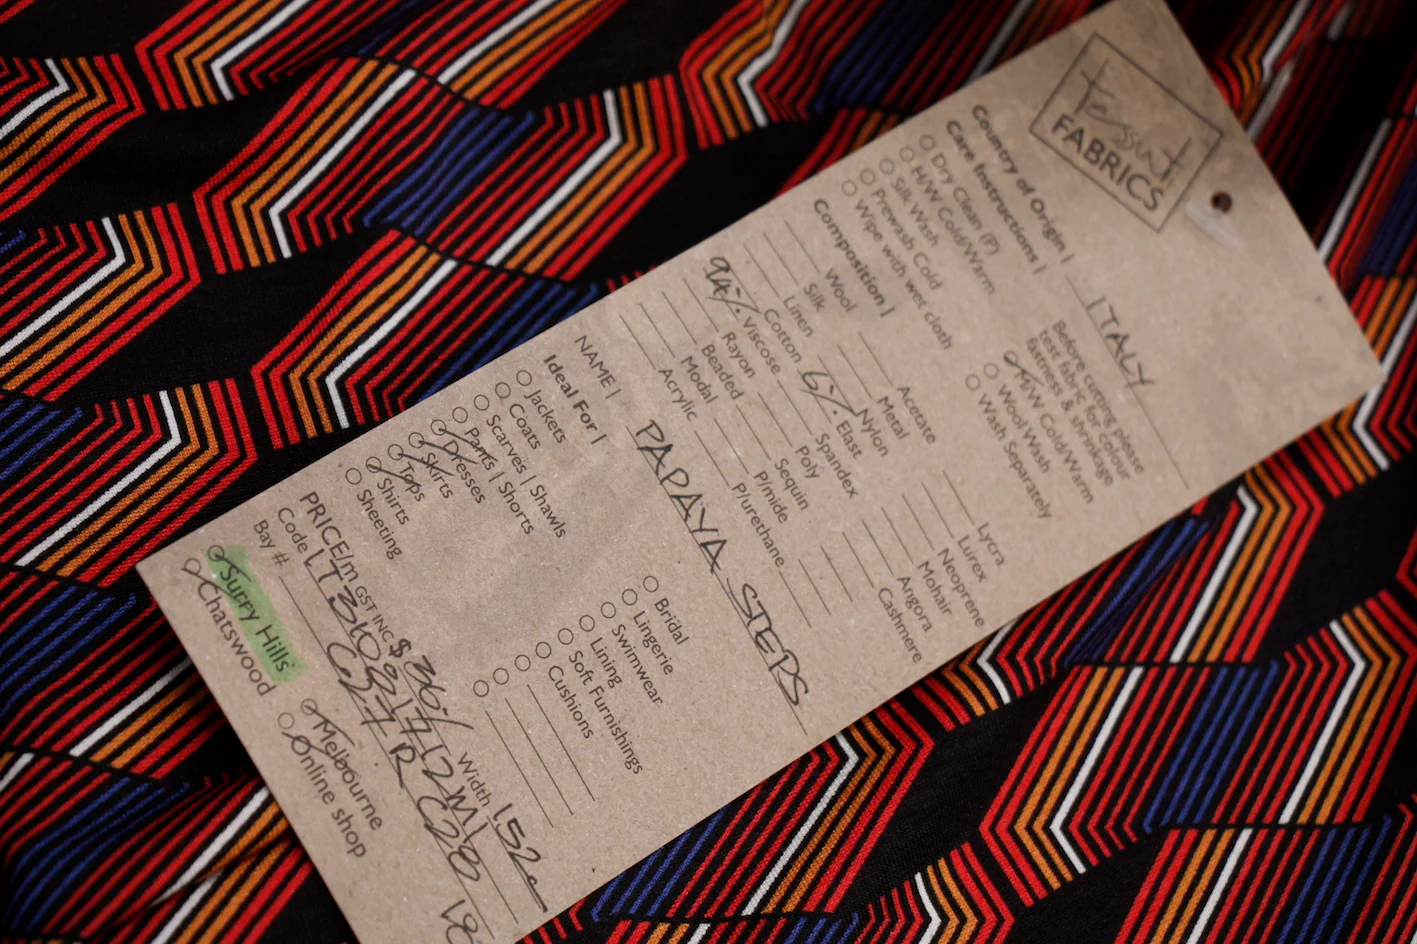 Tessuti
FABRICS
Country of Origin | ITALY
Care Instructions |
Before cutting please
test fabric for colour
fastness & shrinkage
Dry Clean (P)
H/W Cold/Warm
Silk Wash
Prewash Cold
Wipe with wet cloth
M/W Cold/Warm
Wool Wash
Wash Separately
Composition |
Wool
Silk
Linen
Cotton
94% Viscose
Rayon
Beaded
Modal
Acrylic
Acetate
Metal
Nylon
6% Elast
Spandex
Poly
Sequin
P/mide
P/urethane
Lycra
Lurex
Neoprene
Mohair
Angora
Cashmere
NAME | PAPAYA STEPS
Ideal For |
Jackets
Coats
Scarves | Shawls
Pants | Shorts
Dresses
Skirts
Tops
Shirts
Sheeting
Bridal
Lingerie
Swimwear
Lining
Soft Furnishings
Cushions
PRICE/m GST INC $ Width 152
Code |
Bay #
Surry Hills
Chatswood
Melbourne
Online shop